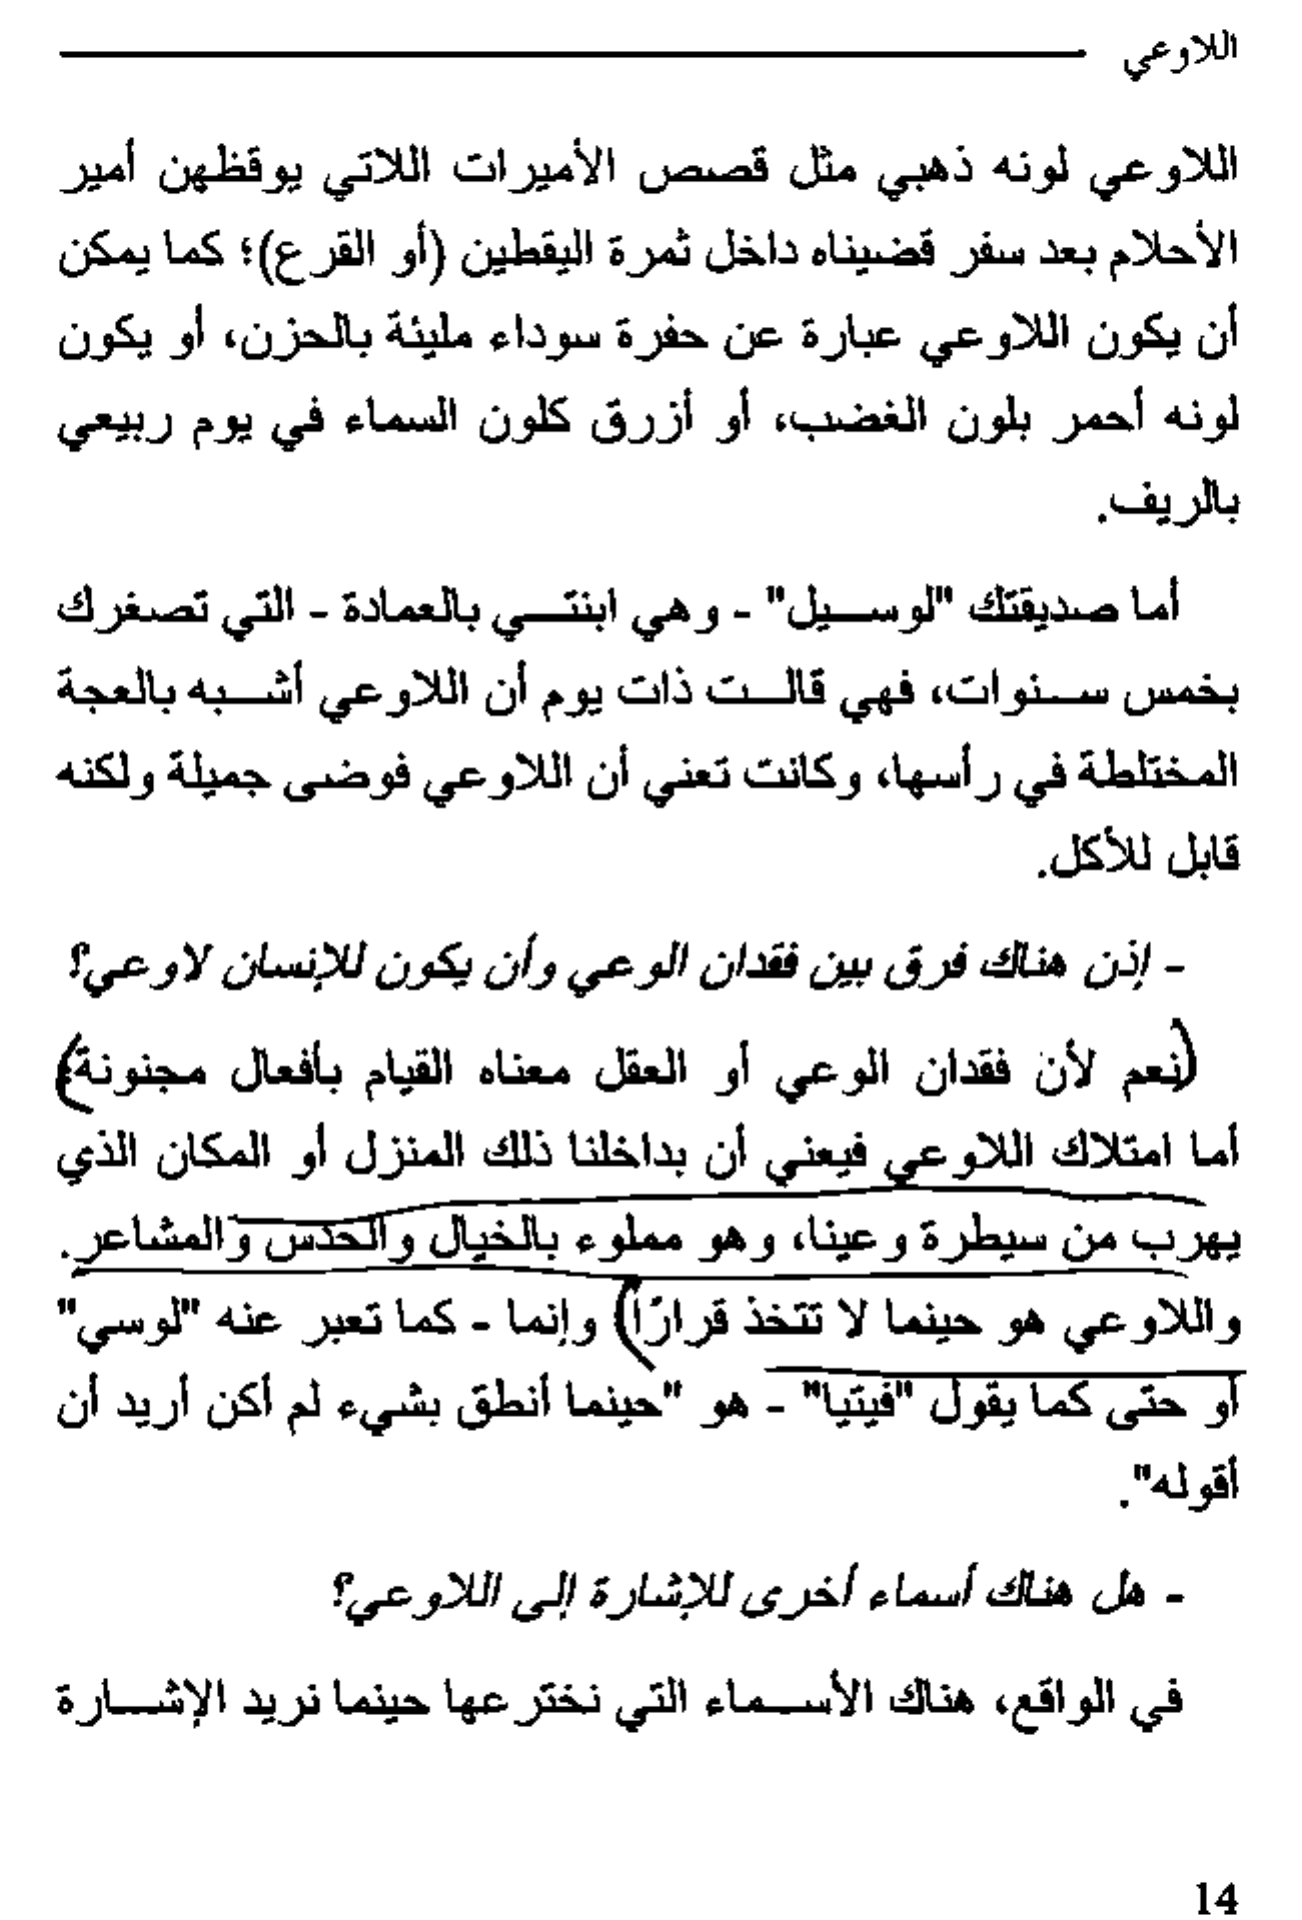 اللاوعي
اللاوعي لونه ذهبي مثل قصص الأميرات اللاتي يوقظهن أمير
الأحلام بعد سفر قضيناه داخل ثمرة اليقطين (أو القرع)؛ كما يمكن
أن يكون اللاوعي عبارة عن حفرة سوداء مليئة بالحزن، أو يكون
لونه أحمر بلون الغضب، أو أزرق كلون السماء في يوم ربيعي
بالريف.
أما صديقتك "لوسيل" - وهي ابنتي بالعمادة - التي تصغرك
بخمس سنوات، فهي قالت ذات يوم أن اللاوعي أشبه بالعجة
المختلطة في رأسها، وكانت تعني أن اللاوعي فوضى جميلة ولكنه
قابل للأكل.
- إذن هناك فرق بين فقدان الوعي وأن يكون للإنسان لاوعي؟
(نعم لأن فقدان الوعي أو العقل معناه القيام بأفعال مجنونة)
أما امتلاك اللاوعي فيعني أن بداخلنا ذلك المنزل أو المكان الذي
يهرب من سيطرة وعينا، وهو مملوء بالخيال والحدس والمشاعر.
واللاوعي هو حينما لا تتخذ قرارًا) وإنما - كما تعبر عنه "لوسي"
أو حتى كما يقول "فيتيا" - هو "حينما أنطق بشيء لم أكن أريد أن
أقوله".
- هل هناك أسماء أخرى للإشارة إلى اللاوعي؟
في الواقع، هناك الأسماء التي نخترعها حينما نريد الإشارة
14